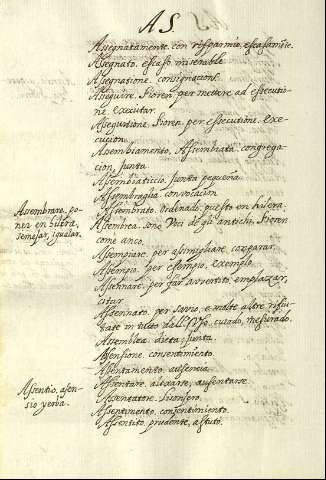 AS.
Assegnatamente. con rispparmio. escasamẽte.
Assegnato. escaso. miserable
Assegnatione. consignacion.
Asseguire. Fioren. per mettere ad essecutio-
ne, executar.
Assegutione. Fioren. per essecutione. exe-
cucion.
Assembiamento. Assembiata. congrega-
cion, junta.
Assembiaticcio. junta pequeña.
Assembraglia. convocacion
Assembrato. ordenado, puesto en hilera.
Assembrea. sono voci degli antichi Fioren.
come anco.
Assempiare, per assimigliare, comparar.
Assempio. per essempio, exemplo.
Assennare. per far avvertito, emplazar,
citar.
Assennato. per savio, e molte altre,
in tutto dell'uso, cuerdo, mesurado.
Assemblea. dieta, junta.
Assensione. consentimiento.
Assentamento. ausencia.
Assentare. alexarse, ausentarse.
Assentatore. lisonjero.
Assentimento. consentimiento.
Assentito. prudente, astuto.
Assembrare. po-
ner en hilera,
semejar, igualar.
Assentio, asen-
sio yerba.